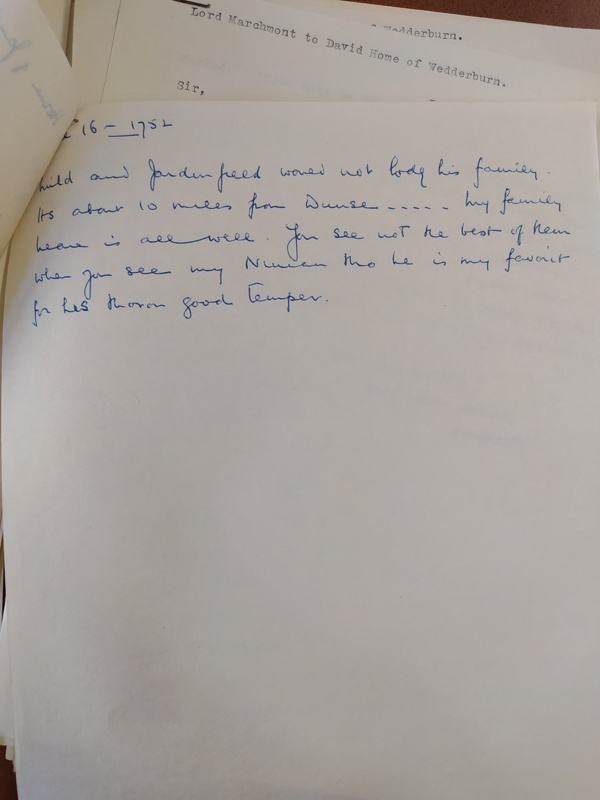 Wedderburn.
Lord Marchmont to David Home of Wedderburn.
Sir,
16 - 1752
child and Jardenfeed woued not lodg his family.
Its about 10 miles from Dunse ----- my family
heare is all well. You see not the best of them
when you see my Ninian tho he is my favorit
for his thoron good temper.